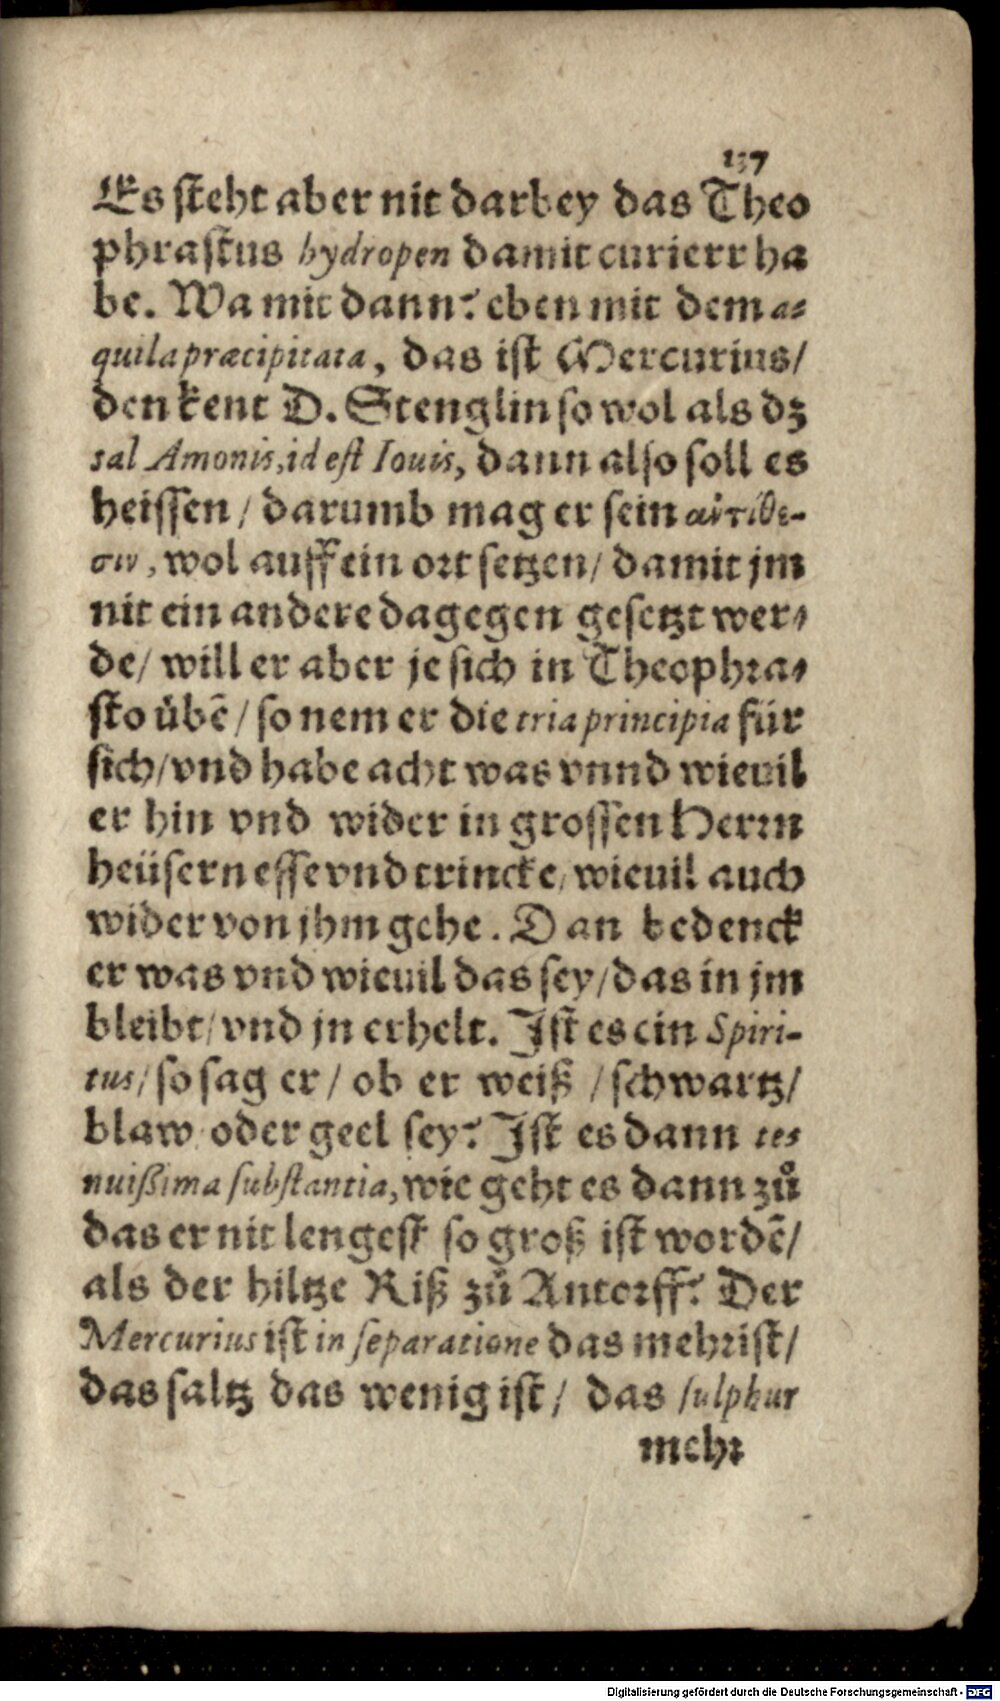 137
Es steht aber nit darbey das Theo
phrastus hydropen damit curierr ha
be. Wa mit dann? eben mit dem a-
quila præcipitata, das ist Mercurius/
den kent D. Stenglin so wol als dz
sal Amonis, id est Iouis, dann also soll es
heissen / darumb mag er sein αντιθε-
σιν, wol auff ein ort setzen / damit jm
nit ein andere dagegen gesetzt wer-
de / will er aber je sich in Theophra-
sto übē / so nem er die tria principia für
sich / vnd habe acht was vnnd wieuil
er hin vnd wider in grossen Herrn
heüsern esse vnd trincke, wieuil auch
wider von jhm gehe. Dan bedenck
er was vnd wieuil das sey / das in jm
bleibt / vnd jn erhelt. Ist es ein Spiri-
tus / so sag er / ob er weiß / schwartz /
blaw oder geel sey? Ist es dann te-
nuißima substantia, wie geht es dann zů
das er nit lengest so groß ist wordē /
als der hiltze Riß zů Antorff? Der
Mercurius ist in separatione das mehrist /
das saltz das wenigist / das sulphur
mehr
Digitalisierung gefördert durch die Deutsche Forschungsgemeinschaft - DFG